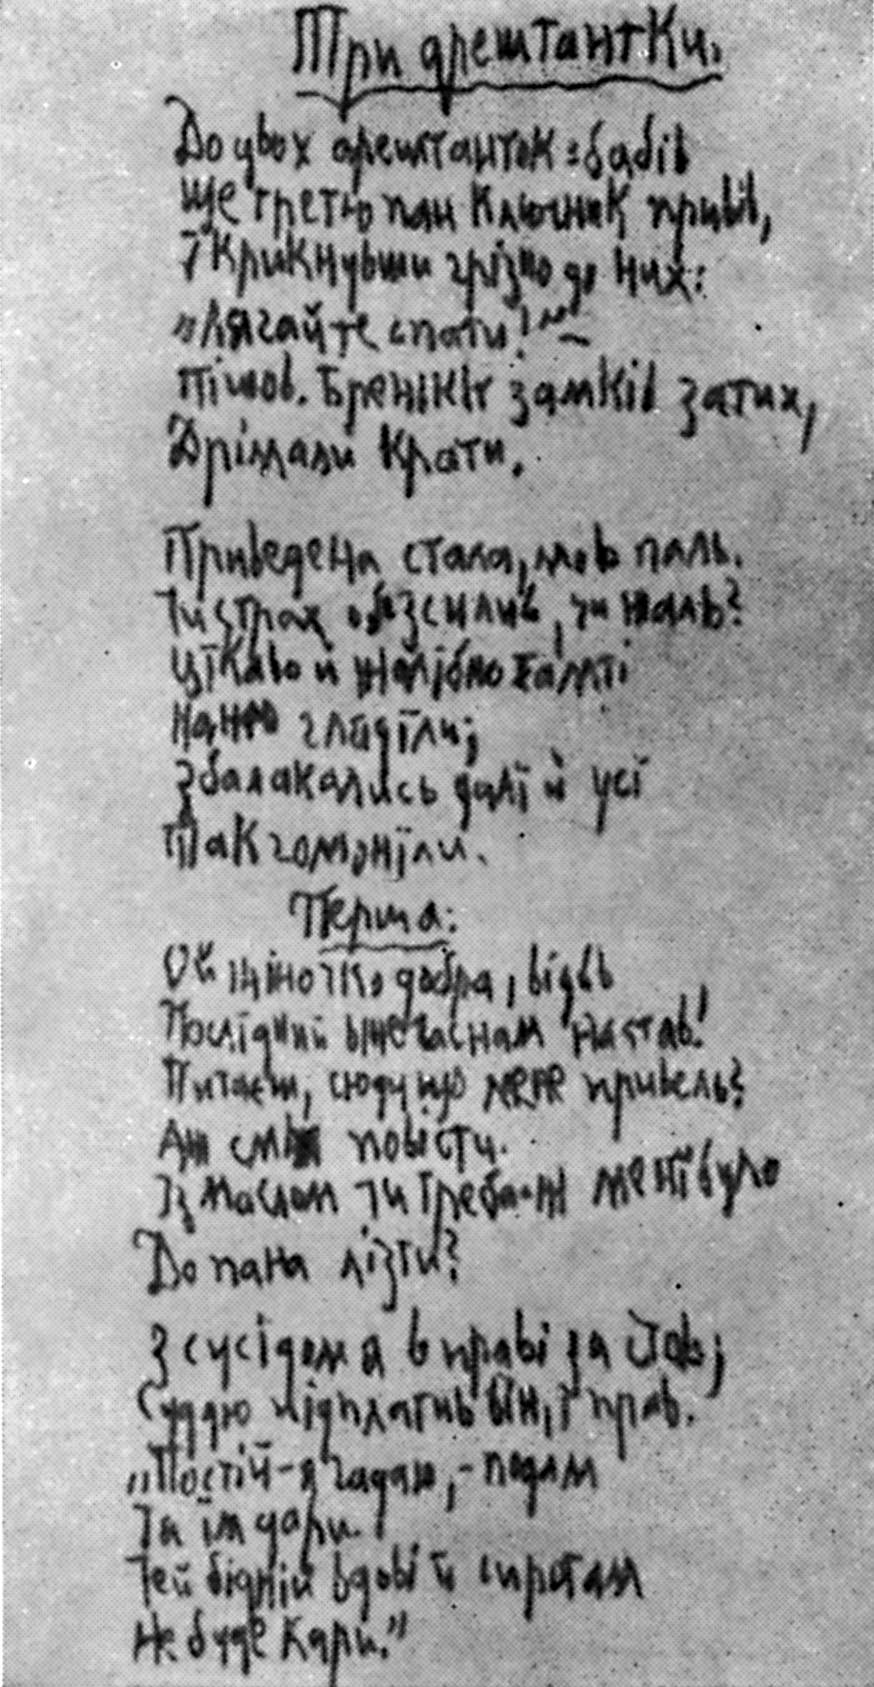 Три арештантки.
До двох арештанток-бабів
Ще третю пан ключник привів,
І крикнувши грізно до них:
„Лягайте спати!" —
Пішов. Бренькіт замків затих,
Дрімали крати.
Приведена стала, мов паль.
Чи страх обезсилив, чи жаль?
Цїкаво й жалібно тамті
На ню глядїли;
Збалакались далї й усї
Так гомонїли.
Перша:
Ой жіночко добра,
Послїдний вже час нам настав!
Питаєш, сюди що мене привель?
Аж сміх повісти.
Із маслом чи треба-ж менї було
До пана лїзти?
З сусїдом я в праві за став;
Суддю підплатив він, і прав.
„Постій — я гадаю, — подам
Та їм дари.
Чей бідній вдові й сиротам
Не буде кари."